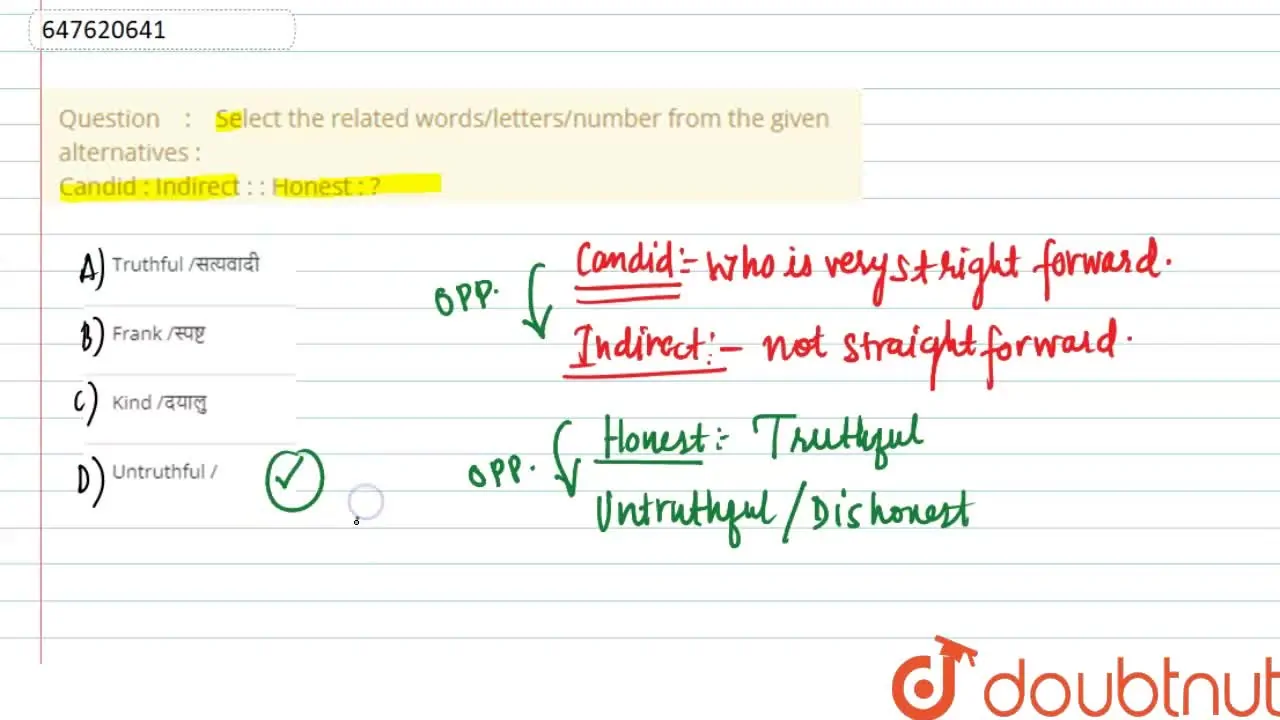 647620641
Question : Select the related words/letters/number from the given
alternatives :
Candid : Indirect : : Honest : ?
A) Truthful /सत्यवादी
B) Frank /स्पष्ट
C) Kind /दयालु
D) Untruthful /
Candid:- Who is very stright forward.
OPP.
Indirect:- not straight forward.
Honest:- Truthful
OPP.
Untruthful / Dishonest
doubtnut